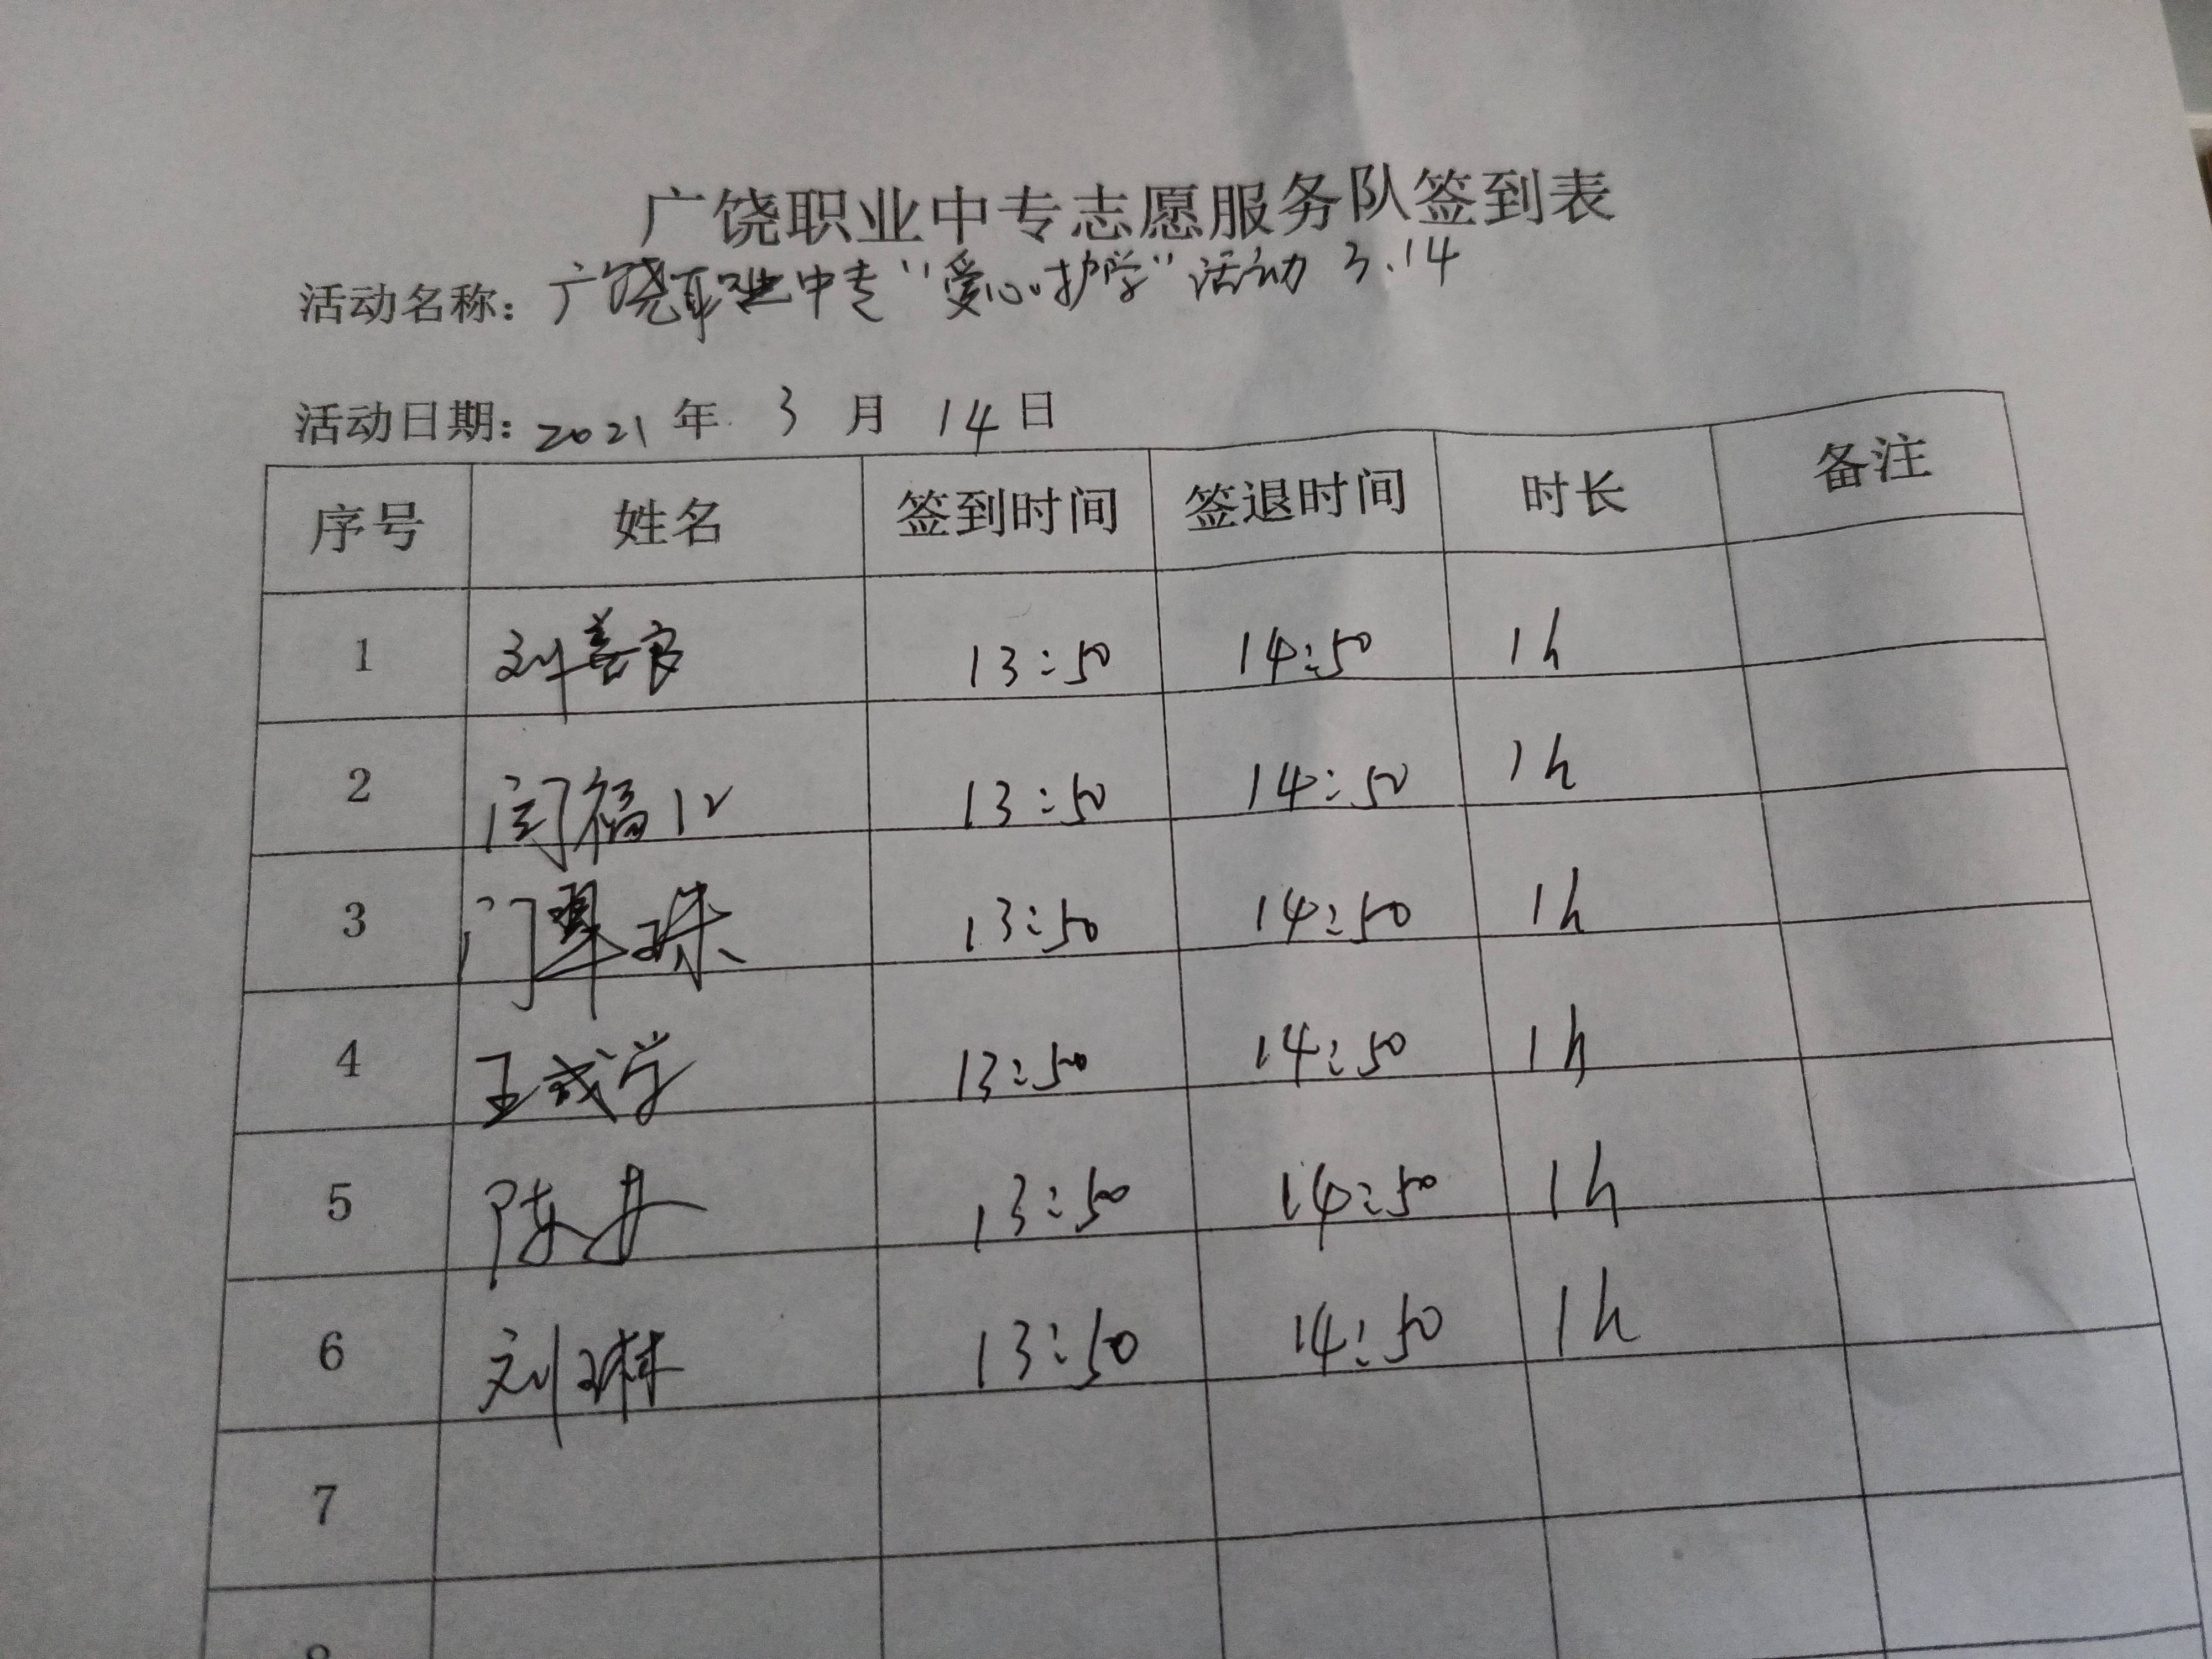 广饶职业中专志愿服务队签到表
活动名称：广饶职业中专“爱心护学”活动 3.14
活动日期：2021 年 3 月 14 日
序号 姓名 签到时间 签退时间 时长 备注
1 刘善良 13:50 14:50 1h
2 闫福 13:50 14:50 1h
3 门翠珠 13:50 14:50 1h
4 王成学 13:50 14:50 1h
5 陈丹 13:50 14:50 1h
6 刘琳 13:50 14:50 1h
7
8